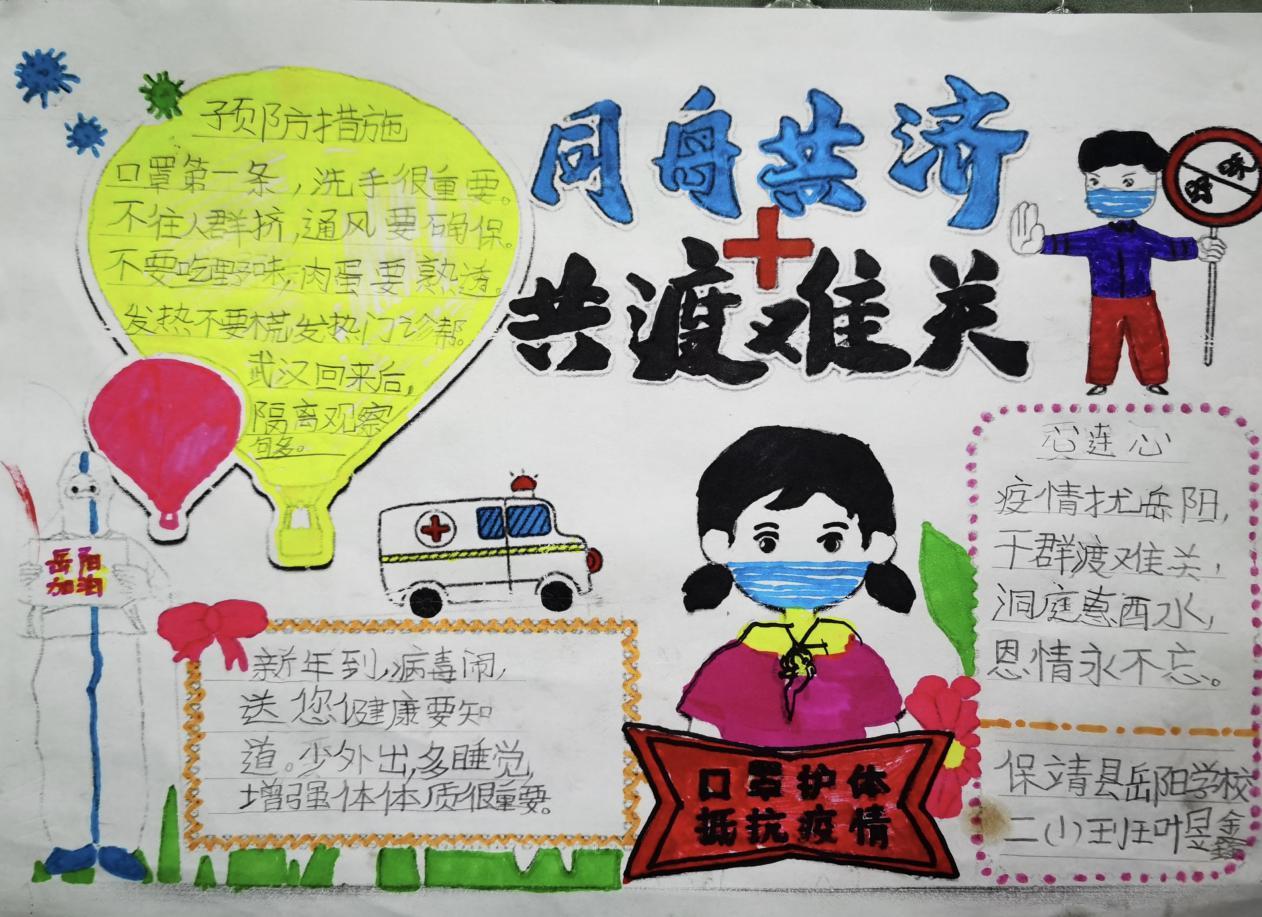 预防措施
口罩第一条,洗手很重要。
不往人群挤,通风要确保。
不要吃野味,肉蛋要熟透。
发热不要慌,发热门诊帮。
武汉回来后,
隔离观察
同舟共济
共渡难关
野味
岳阳
加油
新年到,病毒闹,
送您健康要知
道。少外出,多睡觉,
增强体体质很重要。
口罩护体
抵抗疫情
心连心
疫情扰岳阳,
干群渡难关,
洞庭惠酉水,
恩情永不忘。
保靖县岳阳学校
二(1)班叶昱鑫